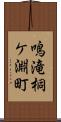 鳴滝桐
ケ淵町